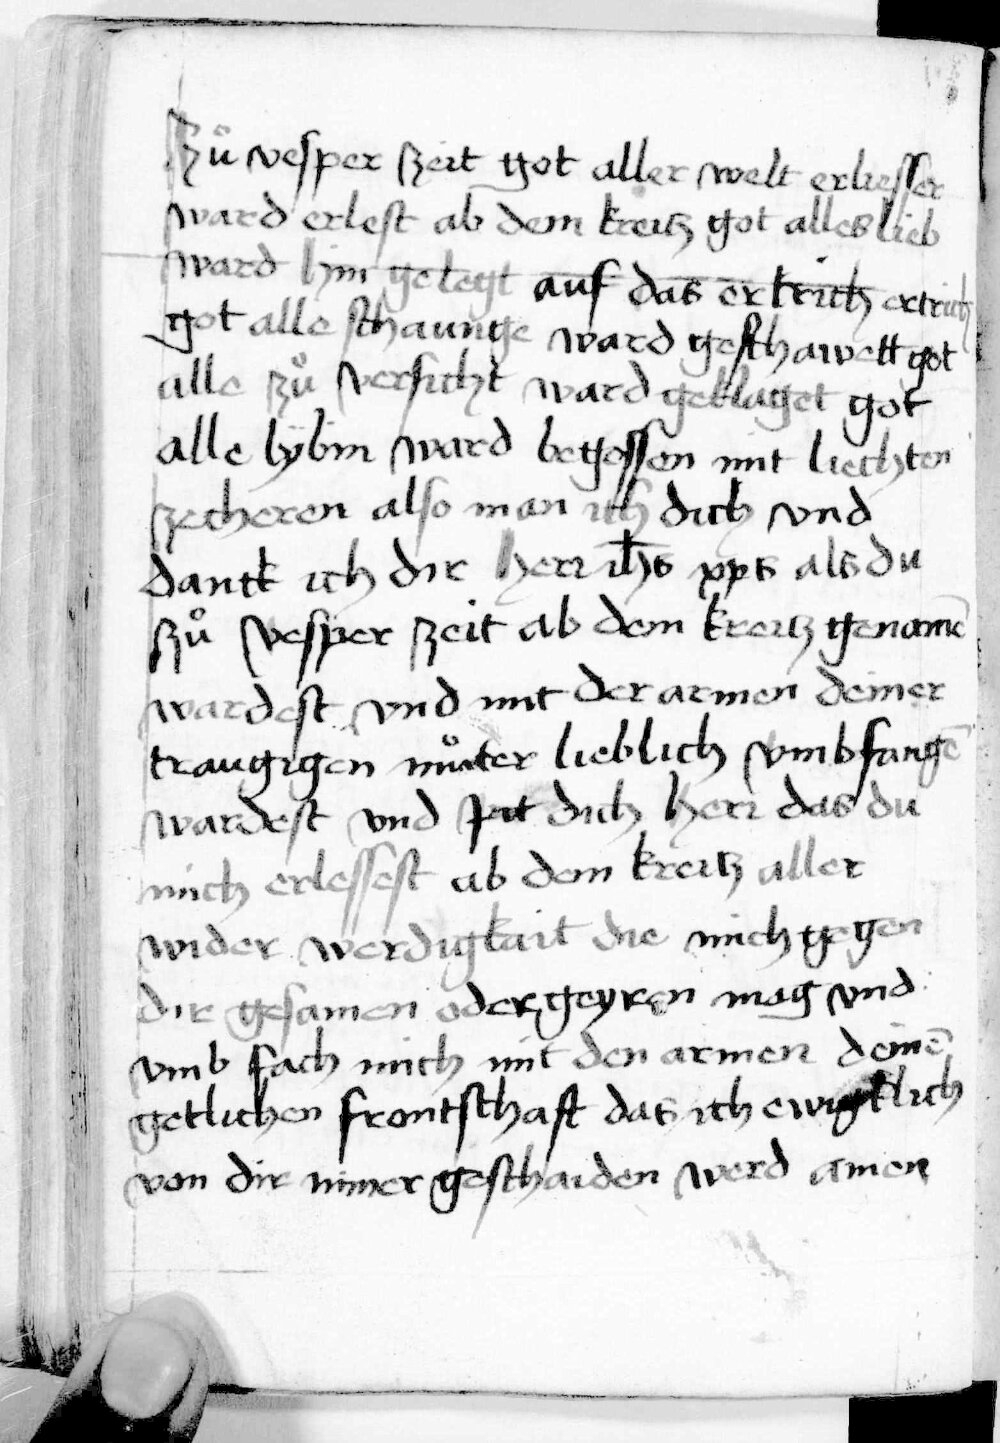 Zů vesper zeit got aller welt erliesser
ward erlest ab dem kreitz got alles lieb
ward hin gelegt auf das erkrich ertrich
got alle schaunge ward geschawett got
alle zů versicht ward geklaget got
alle lÿbin ward begossen mit liechten
zecheren also man ich dich vnd
danck ich dir herr ih̅s xps als du
zů vesper zeit ab dem kreitz genomē
wardest vnd mit der armen deiner
traugigen můter lieblich vmbfangē
wardest vnd pit dich herr das du
mich erlessest ab dem kreitz aller
wider werdigkait die mich gegen
dir gesamen oder geyren mag vnd
vmb fach mich mit den armen deinē
getlichen frontschaft das ich ewigklich
von dir nimer geschaiden werd amen